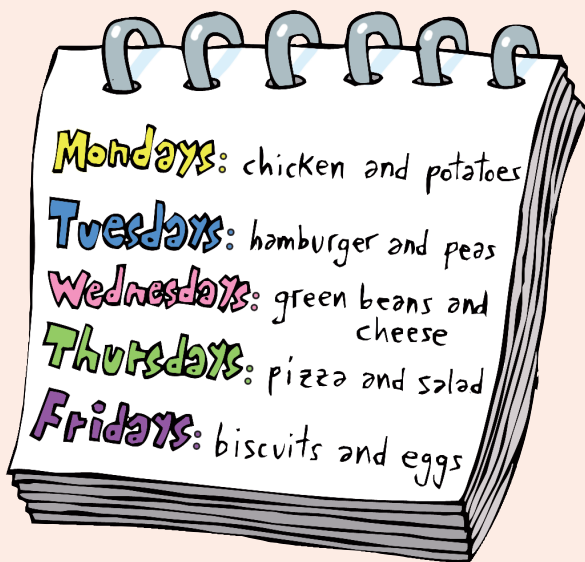 Mondays: chicken and potatoes
Tuesdays: hamburger and peas
Wednesdays: green beans and
cheese
Thursdays: pizza and salad
Fridays: biscuits and eggs